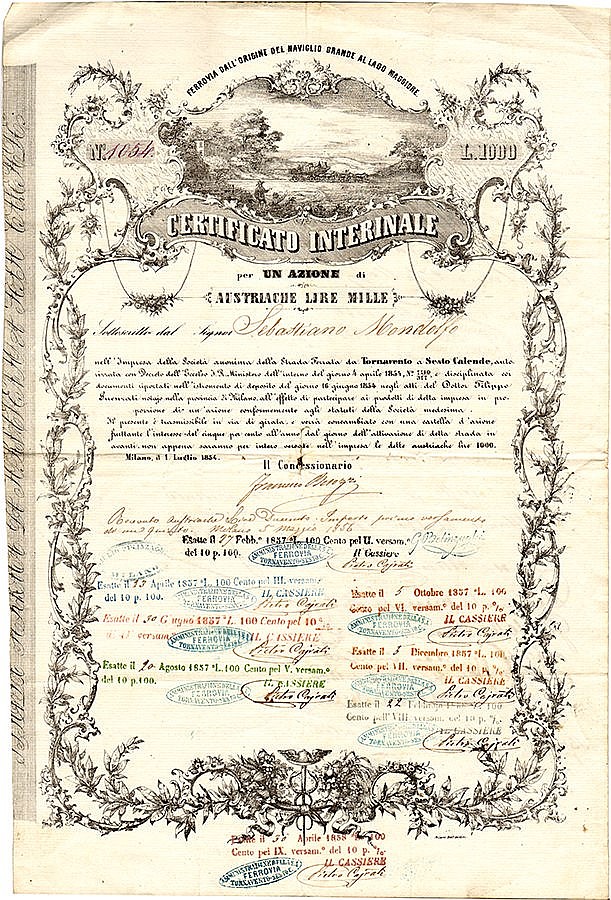 FERROVIA DALL'ORIGINE DEL NAVIGLIO GRANDE AL LAGO MAGGIORE.
N.º 1054 L. 1000
CERTIFICATO INTERINALE
per UN AZIONE di
AUSTRIACHE LIRE MILLE
Sottoscritto dal Signor Sebastiano Mondolfo
nell'Impresa della Società anonima della Strada Ferrata da Tornavento a Sesto Calende, auto-
rizzata con Decreto dell'Eccelso I. R. Ministero dell'interno del giorno 4 aprile 1854, Nº e disciplinata coi
documenti riportati nell'istromento di deposito del giorno 16 giugno 1854 negli atti del Dottor Filippo
Guenzati notajo nella provincia di Milano, all'effetto di partecipare ai prodotti di detta impresa in pro-
porzione di un'azione conformemente agli statuti della Società medesima.
Il presente è trasmissibile in via di girata, e verrà concambiato con una cartella d'azione
fruttante l'interesse del cinque per cento all'anno dal giorno dell'attivazione di detta strada in
avanti, non appena saranno per intero versate nell'impresa le dette austriache lire 1000.
Milano, il 1. Luglio 1854.
Il Concessionario
Ricevuto Austriache Lire Duecento Importo primo versamento
Milano 5 Maggio 1856
Esatte il 27 Febb.º 1857 ªL. 100 Cento pel II. versam.º
del 10 p. 100. Il Cassiere
AMMINISTRAZIONE DELLA
FERROVIA
TORNAVENTO-SESTO C.
Pietro Cajrati
MILANO
Esatte il 13 Aprile 1857 ªL. 100 Cento pel III. versam.º
del 10 p. 100. IL CASSIERE
FERROVIA
Pietro Cajrati
Esatte il 30 Giugno 1857 ªL. 100 Cento pel 10 º/o
versam.º IL CASSIERE
FERROVIA
Pietro Cajrati
Esatte il 20 Agosto 1857 ªL. 100 Cento pel V. versam.º
del 10 p. 100. IL CASSIERE
FERROVIA
Pietro Cajrati
Esatte il 5 Ottobre 1857 ªL. 100
Cento pel VI. versam.º del 10 p. º/o
IL CASSIERE
FERROVIA
Pietro Cajrati
Esatte il 3 Dicembre 1857 ªL. 100
Cento pel VII. versam.º del 10 p. º/o
IL CASSIERE
FERROVIA
Pietro Cajrati
Esatte il 22 Febbraio ªL. 100
Cento pell'VIII versam. del 10 p. º/o
IL CASSIERE
AMMINISTRAZIONE DELLA
FERROVIA
TORNAVENTO-SESTO C.
Pietro Cajrati
Esatte il 30 Aprile 1858 ªL. 100
Cento pel IX. versam.º del 10 p. º/o
IL CASSIERE
AMMINISTRAZIONE DELLA
FERROVIA
TORNAVENTO-SESTO C.
Pietro Cajrati